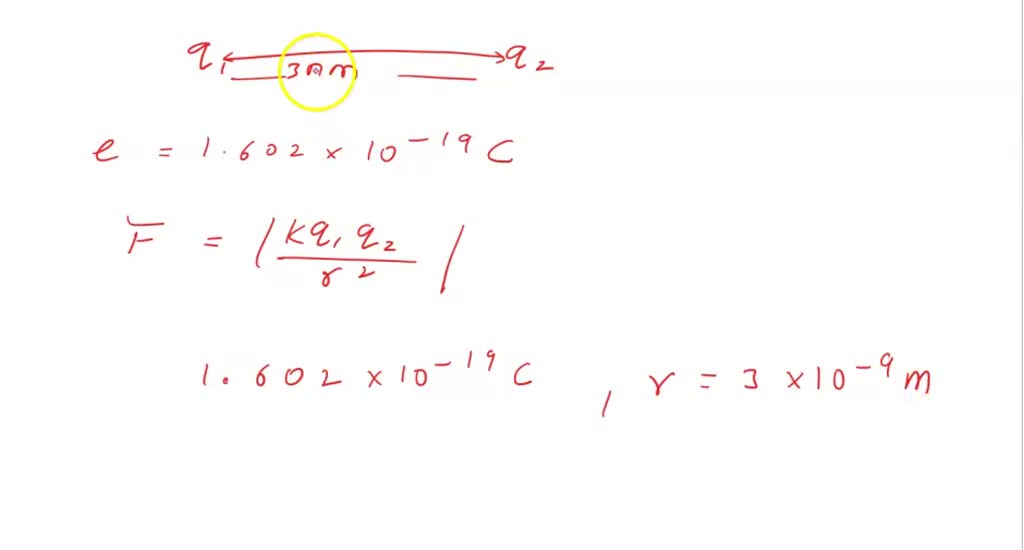 q₁ q₂
3nm
e = 1.602 × 10⁻¹⁹ C
F = |kq₁q₂/r²|
1.602 × 10⁻¹⁹ C , r = 3 × 10⁻⁹ m